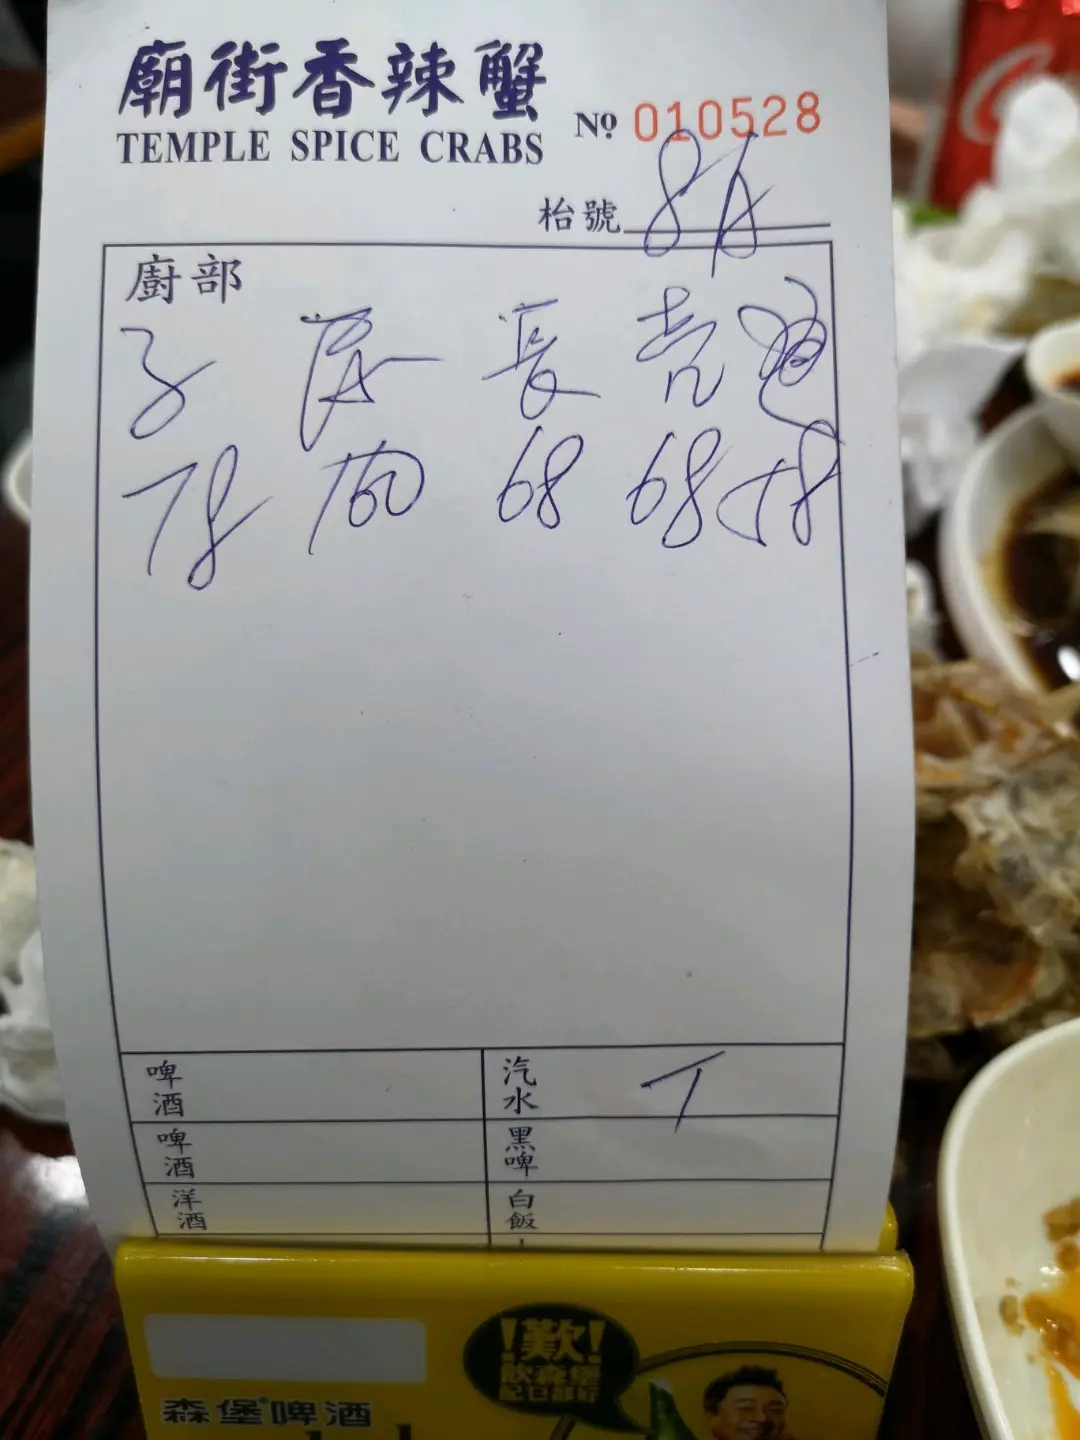 廟街香辣蟹
TEMPLE SPICE CRABS
No 010528
枱號 8A
廚部
長
78 160 68 68 58
啤酒
汽水
啤酒
黑啤
洋酒
白飯
歎!
森堡啤酒